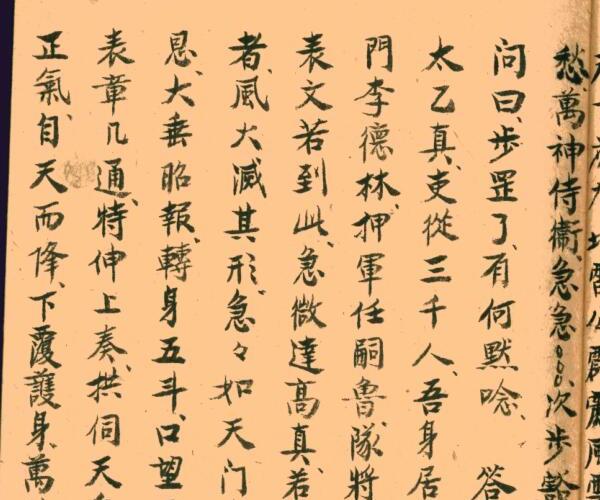 愁、萬神侍衞、急急〻〻、次步
问曰、步罡了、有何默唸、答
太乙真、吏從三千人、吾身居
門李德林、押軍任嗣魯、隊将
表文若到此、急微達高真、若
者、風火滅其形、急々如天门
恩、大垂昭報、轉身五斗、口望
表章几通、特伸上奏、拱伺天
正氣、自天而降、下覆護身、萬